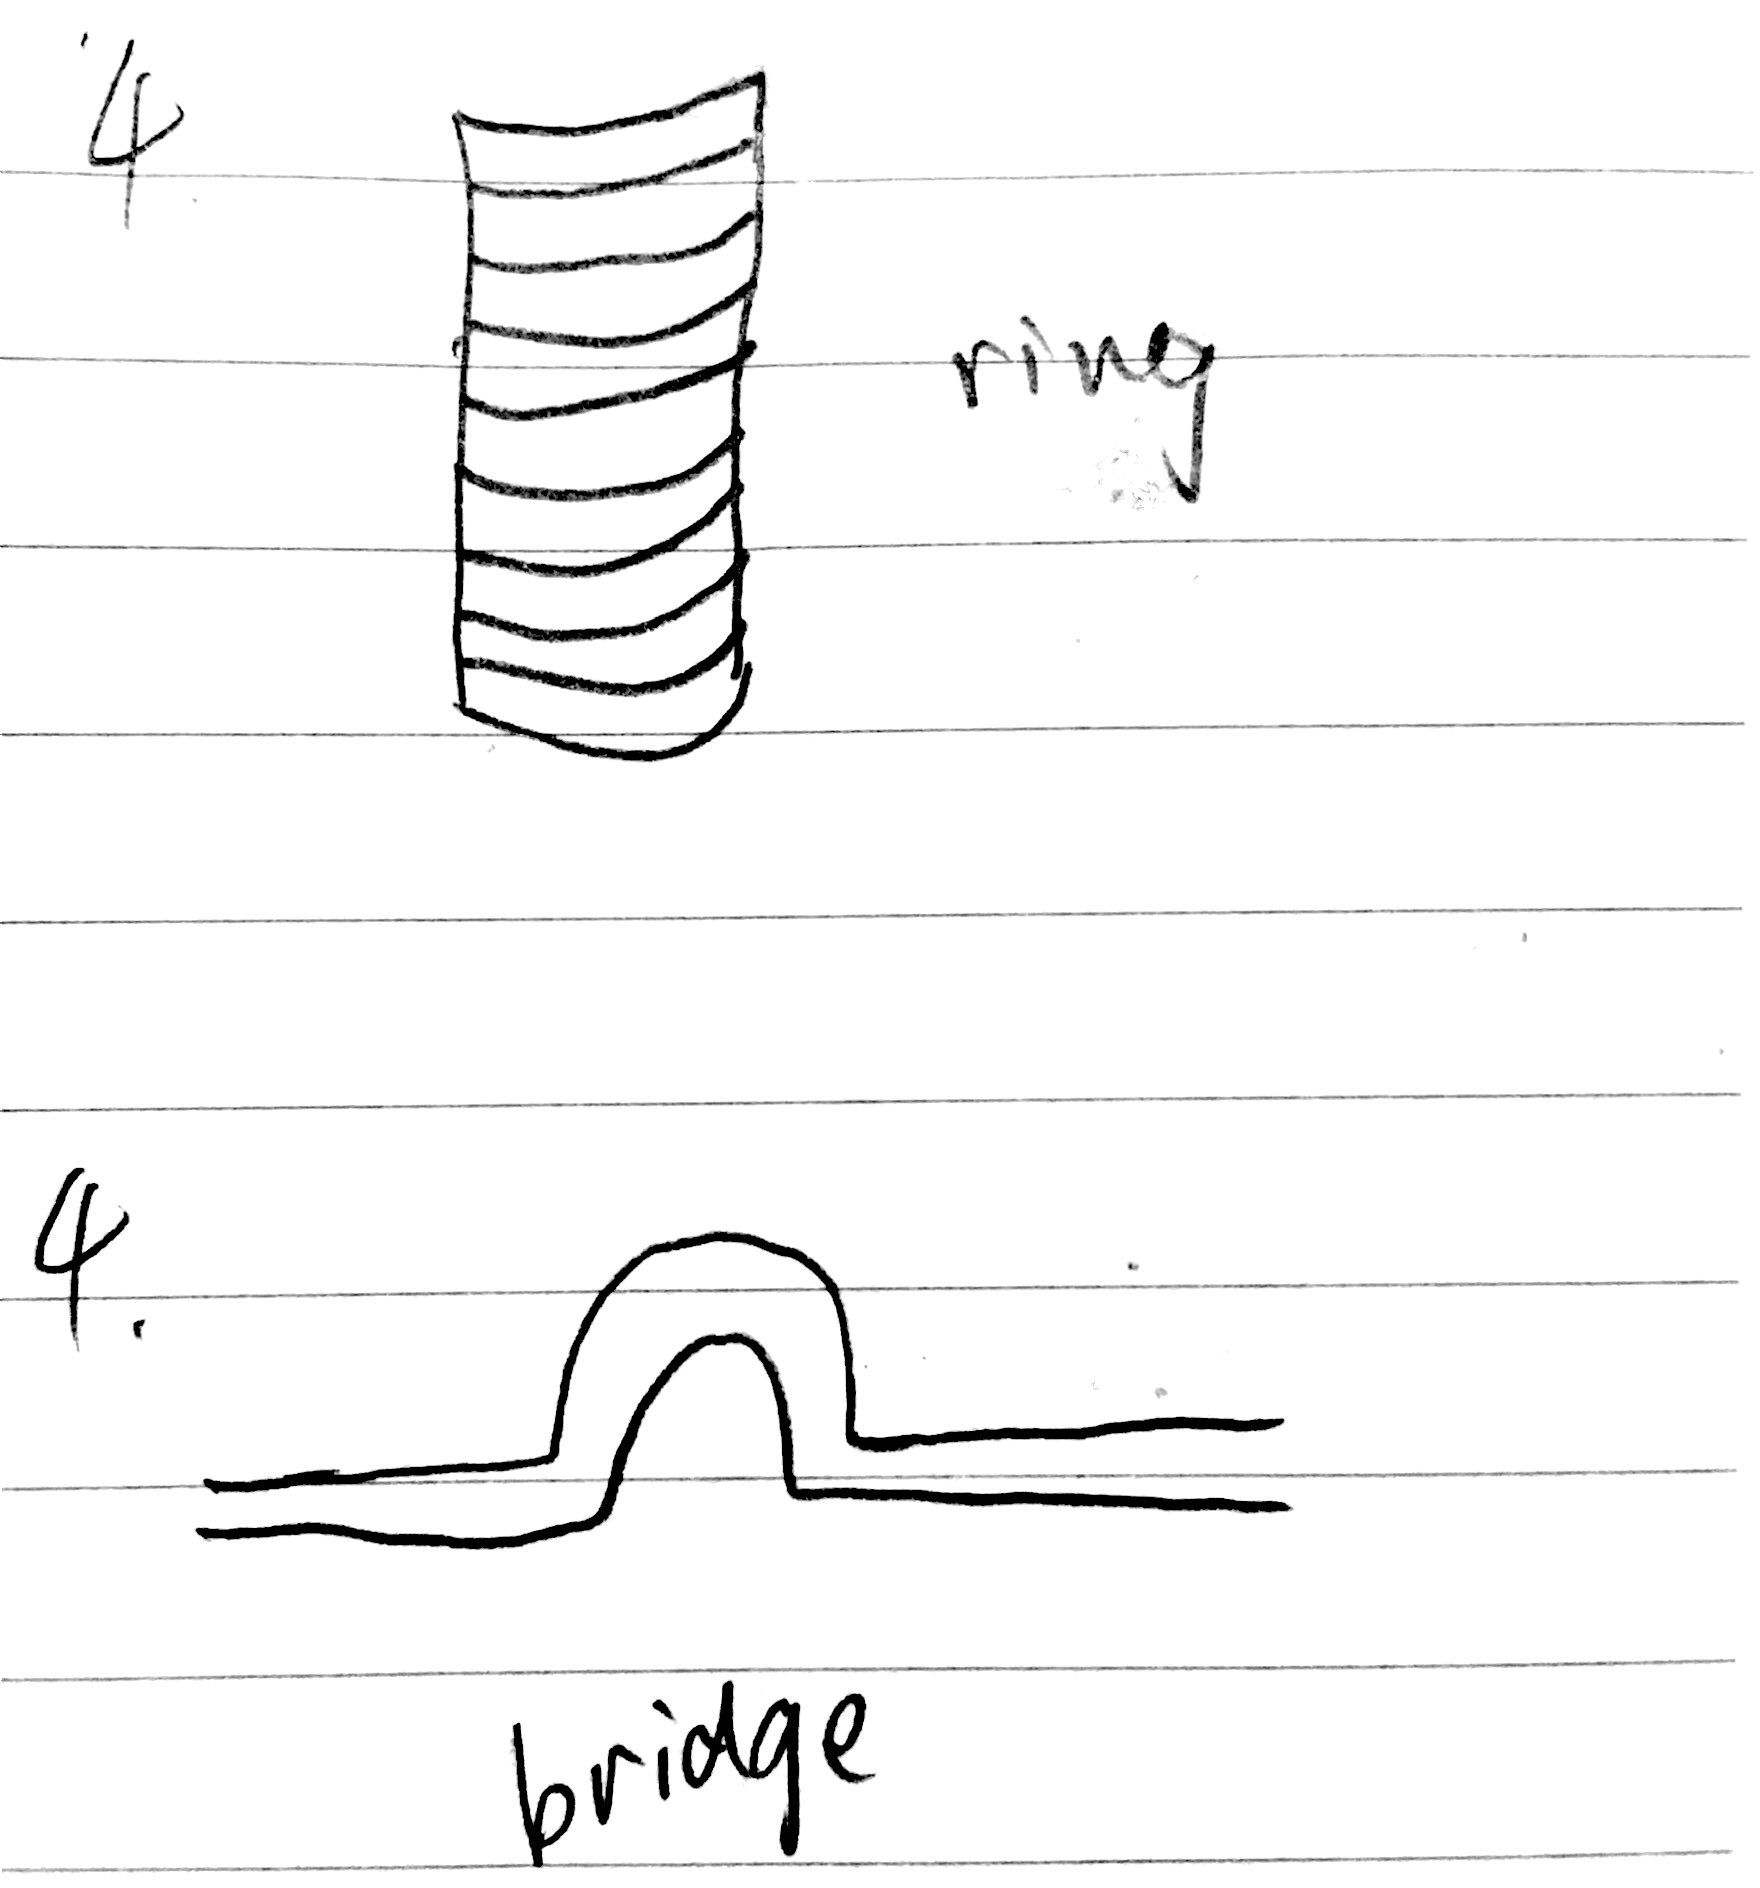 4
ring
4.
bridge